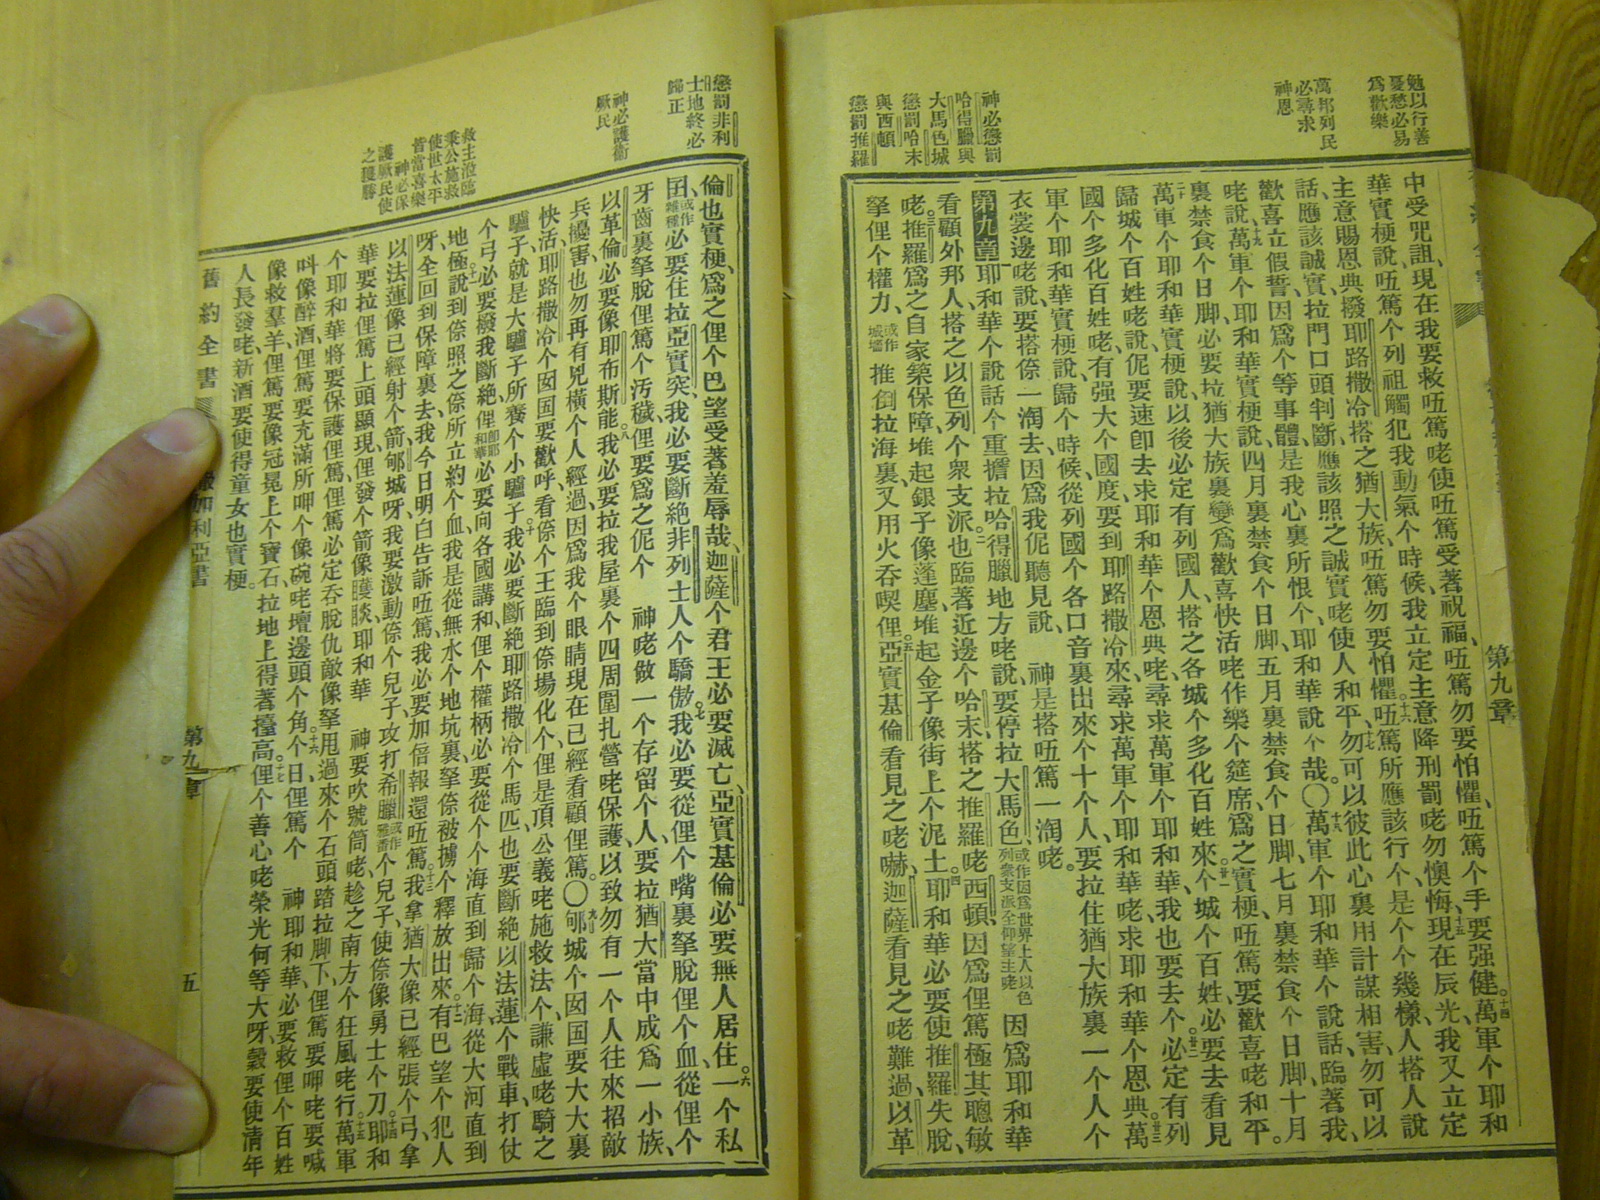 勉以行善
憂愁必易
爲歡樂
萬邦列民
必尋求
神恩
神必懲罰
哈得臘與
大馬色城
懲罰哈末
與西頓
懲罰推羅
第九章
中受咒詛、現在我要救㕶篤咾使㕶篤受著祝福、㕶篤勿要怕懼、㕶篤个手要强健。十四萬軍个耶和
華實梗說、㕶篤个列祖觸犯我動氣个時候、我立定主意降刑罰咾勿懊悔、十五現在辰光我又立定
主意賜恩典撥耶路撒冷搭之猶大族、㕶篤勿要怕懼。十六㕶篤所應該行个是个个幾樣、人搭人說
話、應該誠實、拉門口頭判斷、應該照之誠實咾使人和平、十七勿可以彼此心裏用計謀相害、勿可以
歡喜立假誓、因爲个等事體、是我心裏所恨个、耶和華說个哉。〇十八萬軍个耶和華个說話、臨著我、
咾說、十九萬軍个耶和華實梗說、四月裏禁食个日脚、五月裏禁食个日脚、七月裏禁食个日脚、十月
裏禁食个日脚、必要拉猶大族裏變爲歡喜快活咾作樂个筵席、爲之實梗、㕶篤要歡喜咾和平。
二十萬軍个耶和華實梗說、以後必定有列國人、搭之各城个多化百姓來、廿一个城个百姓、必要去看見
歸城个百姓咾說、伲要速卽去求耶和華个恩典咾、尋求萬軍个耶和華、我也要去个。廿二必定有列
國个多化百姓咾、有强大个國度、要到耶路撒冷來、尋求萬軍个耶和華咾、求耶和華个恩典。廿三萬
軍个耶和華實梗說、歸个時候、從列國个各口音裏出來个十个人、要拉住猶大族裏一个人个
衣裳邊咾說、要搭㑚一淘去、因爲我伲聽見說、神是搭㕶篤一淘咾。
第九章 一耶和華个說話个重擔、拉哈得臘地方咾說、要停拉大馬色、或作因爲世界上人以色列衆支派全仰望主咾 因爲耶和華
看顧外邦人、搭之以色列个衆支派、二也臨著近邊个哈末、搭之推羅咾西頓、因爲俚篤極其聰敏
咾。三推羅爲之自家築保障、堆起銀子像蓬塵、堆起金子像街上个泥土、四耶和華必要使推羅失脫、
拏俚个權力、或作城墻 推倒拉海裏、又用火吞喫俚。五亞實基倫看見之咾嚇、迦薩看見之咾難過、以革
懲罰非利
士地終必
歸正
神必護衞
厥民
救主涖臨
秉公施救
使世太平
皆當喜樂
神必保
護厥民使
之獲勝
倫也實梗、爲之俚个巴望受著羞辱哉、迦薩个君王必要滅亡、亞實基倫必要無人居住。六一个私
囝、或作雜種 必要住拉亞實突、我必要斷絕非列士人个驕傲、七我必要從俚个嘴裏拏脫俚个血、從俚个
牙齒裏拏脫俚篤个汚穢、俚要爲之伲个 神咾做一个存留个人、要拉猶大當中成爲一小族、
以革倫必要像耶布斯能、八我必要拉我屋裏个四周圍扎營咾保護、以致勿有一个人往來招敵
兵擾害、也勿再有兇橫个人經過、因爲我个眼睛現在已經看顧俚篤。〇九郇城个囡国要大大裏
快活、耶路撒冷个囡国要歡呼、看㑚个王臨到㑚場化、个俚是頂公義咾施救法个、謙虛咾騎之
驢子、就是大驢子所養个小驢子、十我必要斷絕耶路撒冷个馬匹、也要斷絕以法蓮个戰車、打仗
个弓必要撥我斷絕、俚 卽耶和華 必要向各國講和、俚个權柄必要從个个海直到歸个海、從大河直到
地極。十一說到㑚照之㑚所立約个血、我是從無水个地坑裏拏㑚被擄个釋放出來、十二有巴望个犯人
呀、全回到保障裏去、我今日明白告訴㕶篤、我必要加倍報還㕶篤。十三我拿猶大像已經張个弓、拿
以法蓮像已經射个箭、郇城呀、我要激動㑚个兒子、攻打希臘 或作雅番 个兒子、使㑚像勇士个刀。十四耶和
華要拉俚篤上頭顯現、俚發个箭像䁨䀹、耶和華 神要吹號筒咾、趁之南方个狂風咾行。十五萬軍
个耶和華將要保護俚篤、俚篤必定吞脫仇敵、像拏甩過來个石頭踏拉脚下、俚篤要呷咾要喊
呌像醉酒、俚篤要充滿所呷个、像碗咾壇邊頭个角。十六个日、俚篤个 神耶和華、必要救俚个百姓
像救羣羊、俚篤要像冠冕上个寶石、拉地上得著擡高。十七俚个善心咾榮光何等大呀、穀要使淸年
人長發咾、新酒要使得童女也實梗。
舊約全書
撒加利亞書
第九章
五